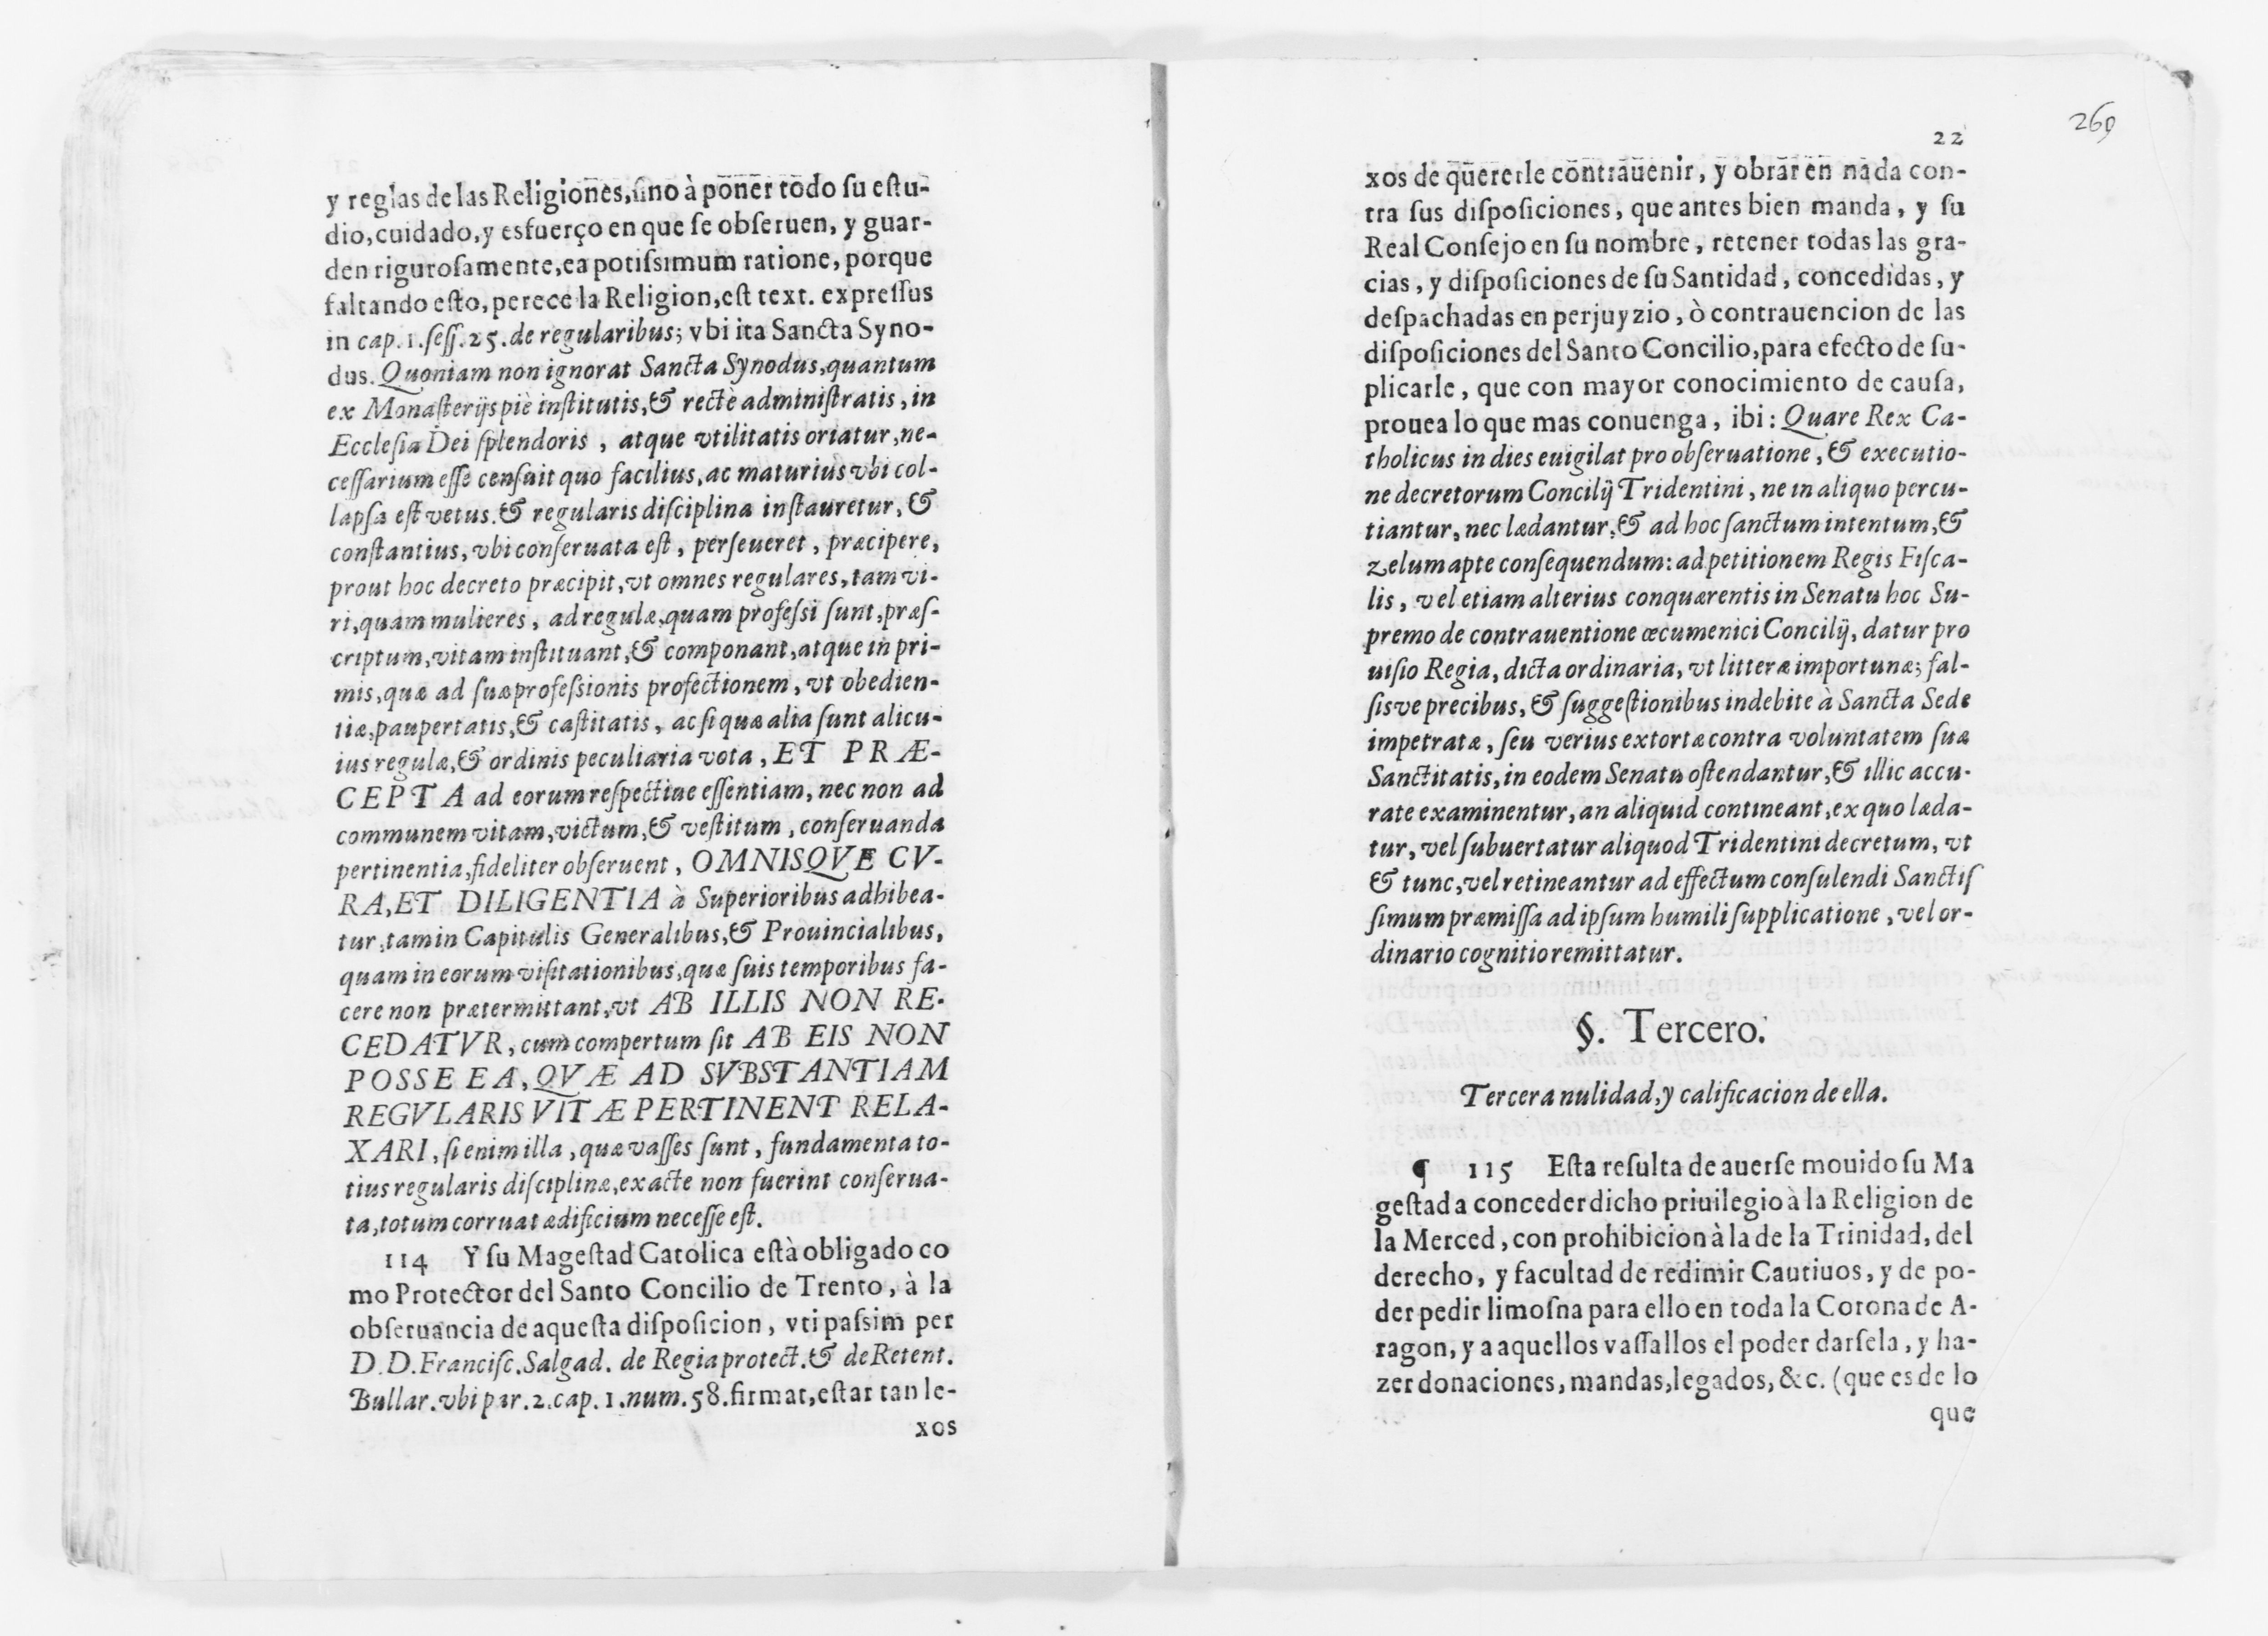 y reglas de las Religiones, sino à poner todo su estu-
dio, cuidado, y esfuerço en que se obseruen, y guar-
den rigurosamente, ea potissimum ratione, porque
faltando esto, perece la Religion, est text. expressus
in cap. 1. sess. 25. de regularibus; vbi ita Sancta Syno-
dus. Quoniam non ignorat Sancta Synodus, quantum
ex Monasterijs piè institutis, & rectè administratis, in
Ecclesia Dei splendoris, atque vtilitatis oriatur, ne-
cessarium esse censuit quo facilius, ac maturius vbi col-
lapsa est vetus. & regularis disciplina instauretur, &
constantius, vbi conseruata est, perseueret, præcipere,
prout hoc decreto præcipit, vt omnes regulares, tam vi-
ri, quam mulieres, ad regulæ, quam professi sunt, præs-
criptum, vitam instituant, & componant, atque in pri-
mis, quæ ad suæ professionis profectionem, vt obedien-
tiæ, paupertatis, & castitatis, ac si quæ alia sunt alicu-
ius regulæ, & ordinis peculiaria vota, ET PRÆ-
CEPTA ad eorum respectiue essentiam, nec non ad
communem vitam, victum, & vestitum, conseruanda
pertinentia, fideliter obseruent, OMNISQVE CV-
RA, ET DILIGENTIA à Superioribus adhibea-
tur, tam in Capitulis Generalibus, & Prouincialibus,
quam in eorum visitationibus, quæ suis temporibus fa-
cere non prætermittant, vt AB ILLIS NON RE-
CEDATVR, cum compertum sit AB EIS NON
POSSE EA, QVÆ AD SVBSTANTIAM
REGVLARIS VITÆ PERTINENT RELA-
XARI, si enim illa, quæ vasses sunt, fundamenta to-
tius regularis disciplinæ, exacte non fuerint conserua-
ta, totum corruat ædificium necesse est.
114 Y su Magestad Catolica està obligado co
mo Protector del Santo Concilio de Trento, à la
obseruancia de aquesta disposicion, vti passim per
D. D. Francisc. Salgad. de Regia protect. & de Retent.
Bullar. vbi par. 2. cap. 1. num. 58. firmat, estar tan le-
xos
260
22
xos de quererle contrauenir, y obrar en nada con-
tra sus disposiciones, que antes bien manda, y su
Real Consejo en su nombre, retener todas las gra-
cias, y disposiciones de su Santidad, concedidas, y
despachadas en perjuyzio, ò contrauencion de las
disposiciones del Santo Concilio, para efecto de su-
plicarle, que con mayor conocimiento de causa,
prouea lo que mas conuenga, ibi: Quare Rex Ca-
tholicus in dies euigilat pro obseruatione, & executio-
ne decretorum Concilij Tridentini, ne in aliquo percu-
tiantur, nec lædantur, & ad hoc sanctum intentum, &
zelum apte consequendum: ad petitionem Regis Fisca-
lis, vel etiam alterius conquærentis in Senatu hoc Su-
premo de contrauentione œcumenici Concilij, datur pro
uisio Regia, dicta ordinaria, vt litteræ importunæ; fal-
sisve precibus, & suggestionibus indebite à Sancta Sede
impetratæ, seu verius extortæ contra voluntatem suæ
Sanctitatis, in eodem Senatu ostendantur, & illic accu-
rate examinentur, an aliquid contineant, ex quo læda-
tur, vel subuertatur aliquod Tridentini decretum, vt
& tunc, vel retineantur ad effectum consulendi Sanctis
simum præmissa ad ipsum humili supplicatione, vel or-
dinario cognitio remittatur.
§. Tercero.
Tercera nulidad, y calificacion de ella.
¶ 115 Esta resulta de auerse mouido su Ma
gestad a conceder dicho priuilegio à la Religion de
la Merced, con prohibicion à la de la Trinidad, del
derecho, y facultad de redimir Cautiuos, y de po-
der pedir limosna para ello en toda la Corona de A-
ragon, y a aquellos vassallos el poder darsela, y ha-
zer donaciones, mandas, legados, &c. (que es de lo
que